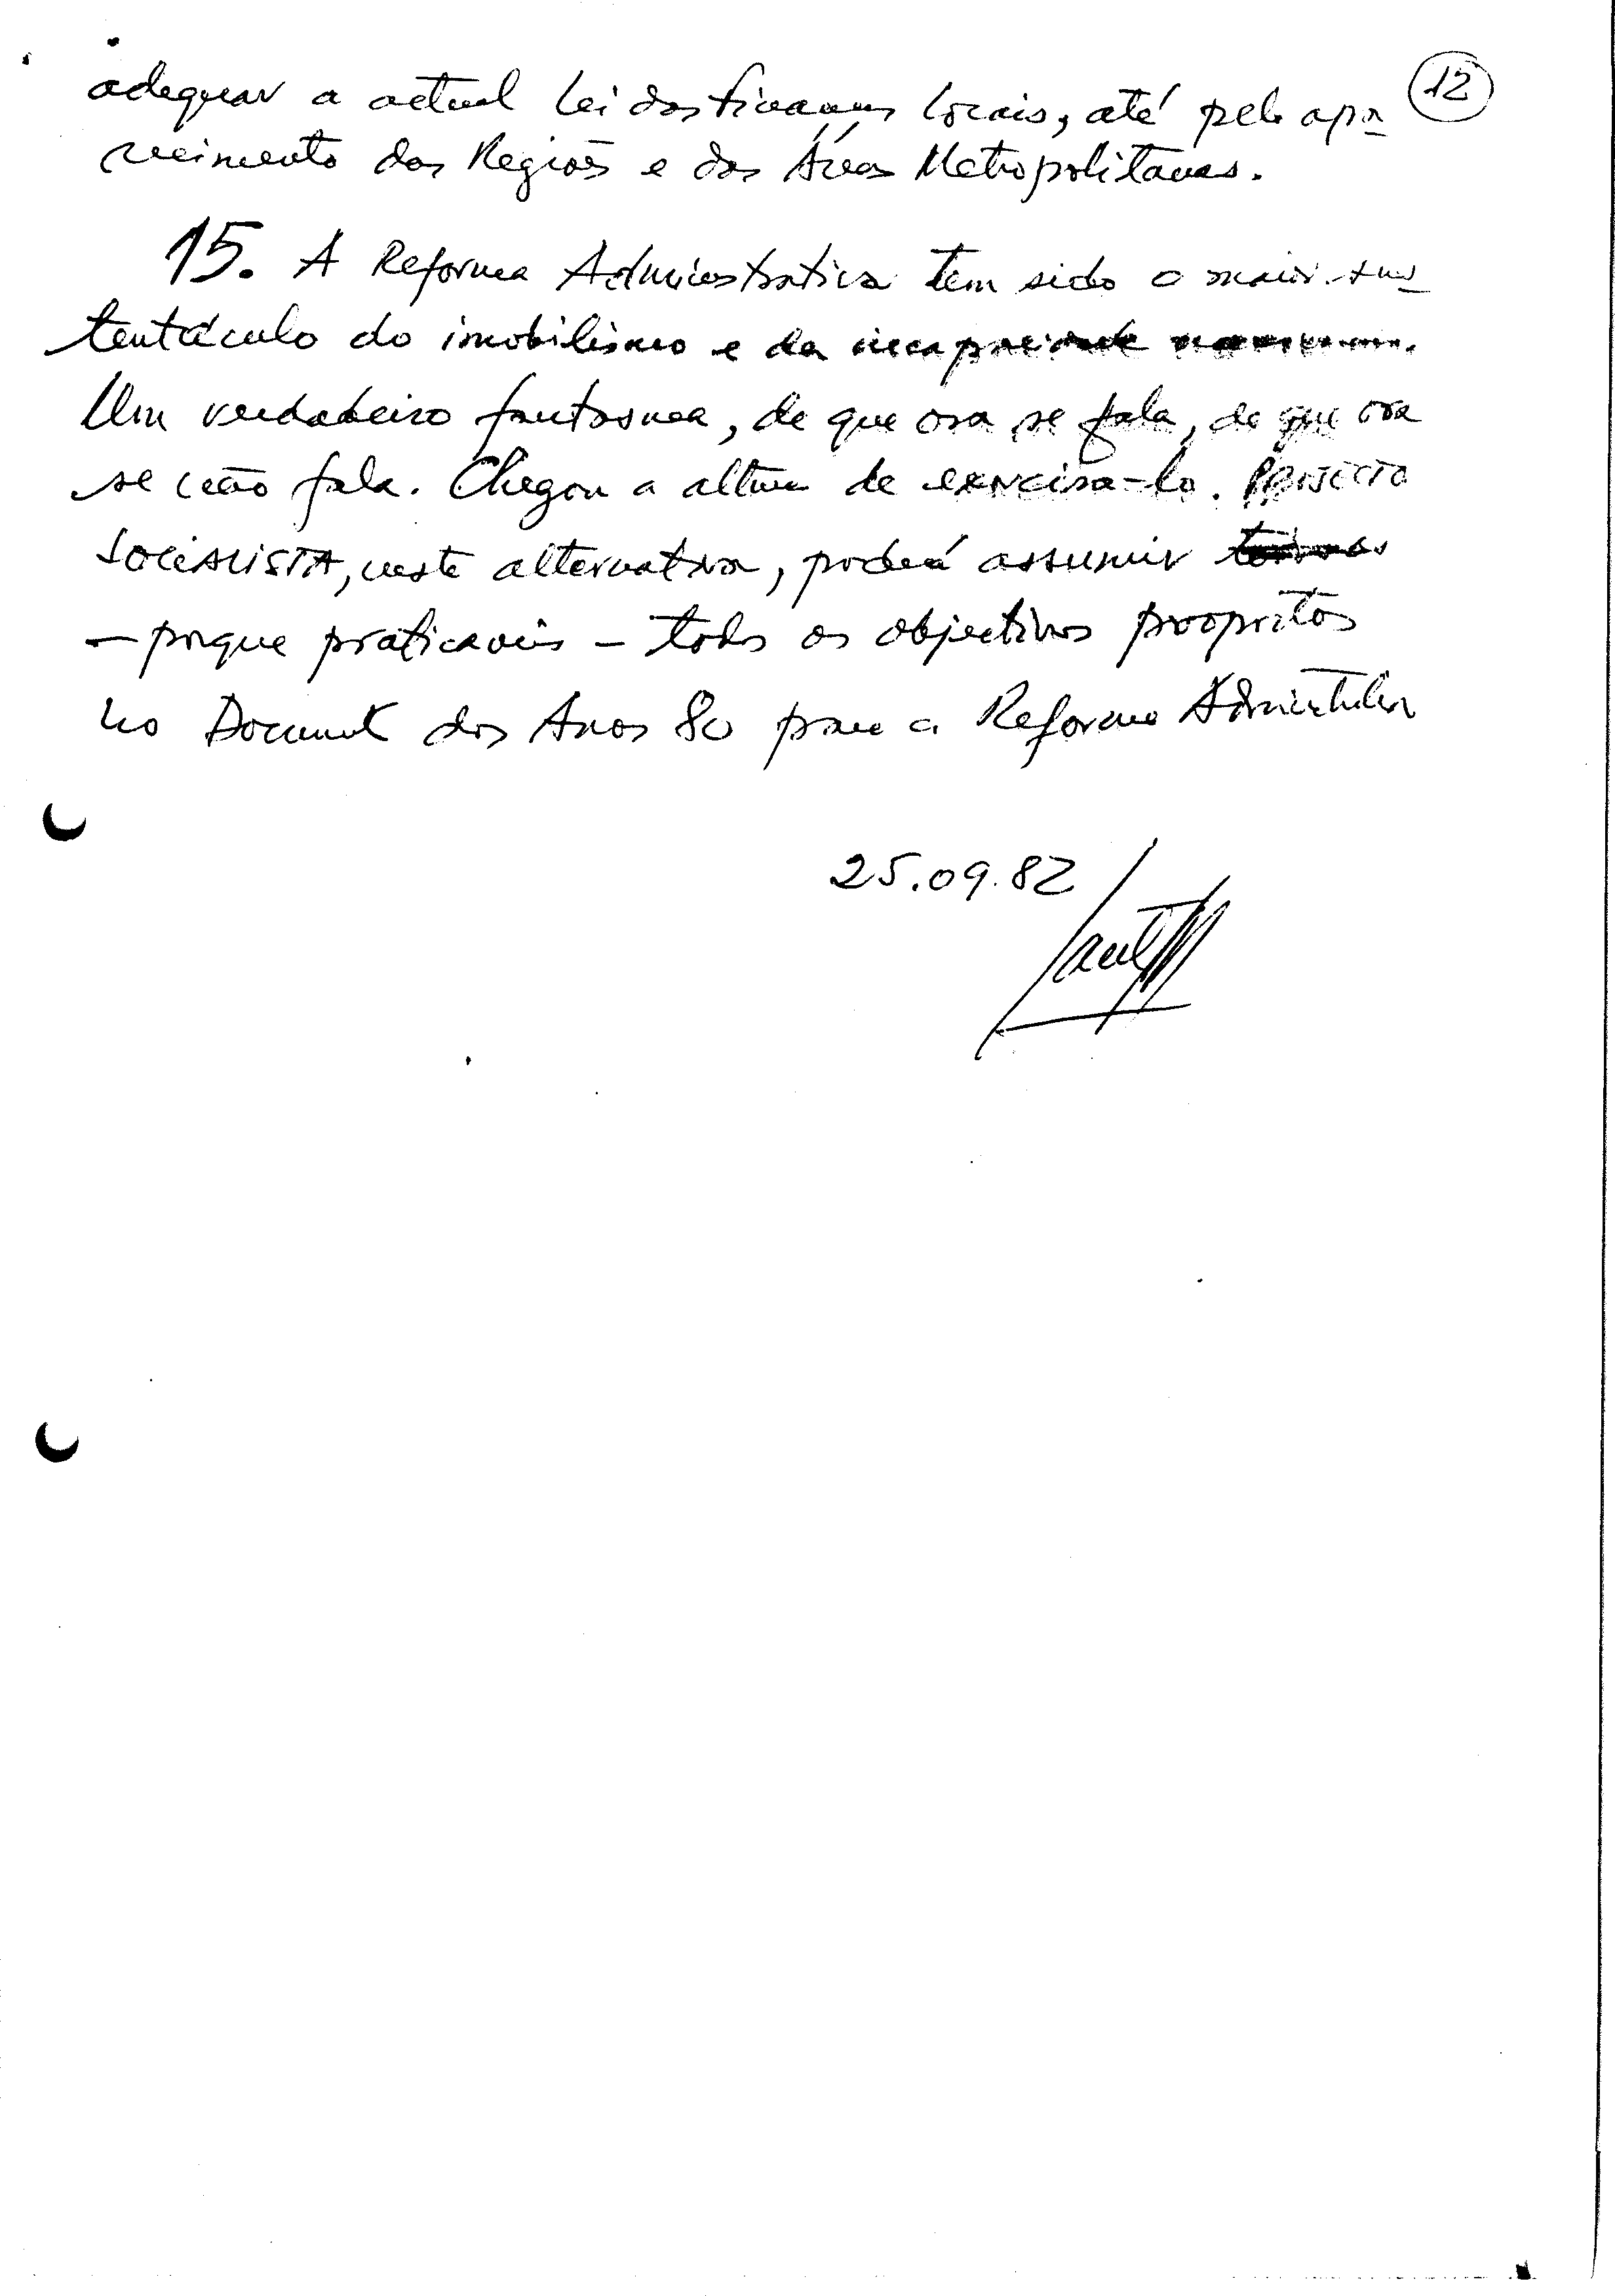 12
adequar a actual Lei das Finanças Locais, até pelo apa-
recimento das Regiões e das Áreas Metropolitanas.
15. A Reforma Administrativa tem sido o maior sus-
tentáculo do imobilismo e da incapacidade
Um verdadeiro fantasma, de que ora se fala, de que ora
se não fala. Chegou a altura de exorcisa-lo. PROJECTO
SOCIALISTA, nesta alternativa, poderá assumir
- porque praticaveis - todos os objectivos propostos
no Document dos Anos 80 para a Reforma Administrativa
25.09.82